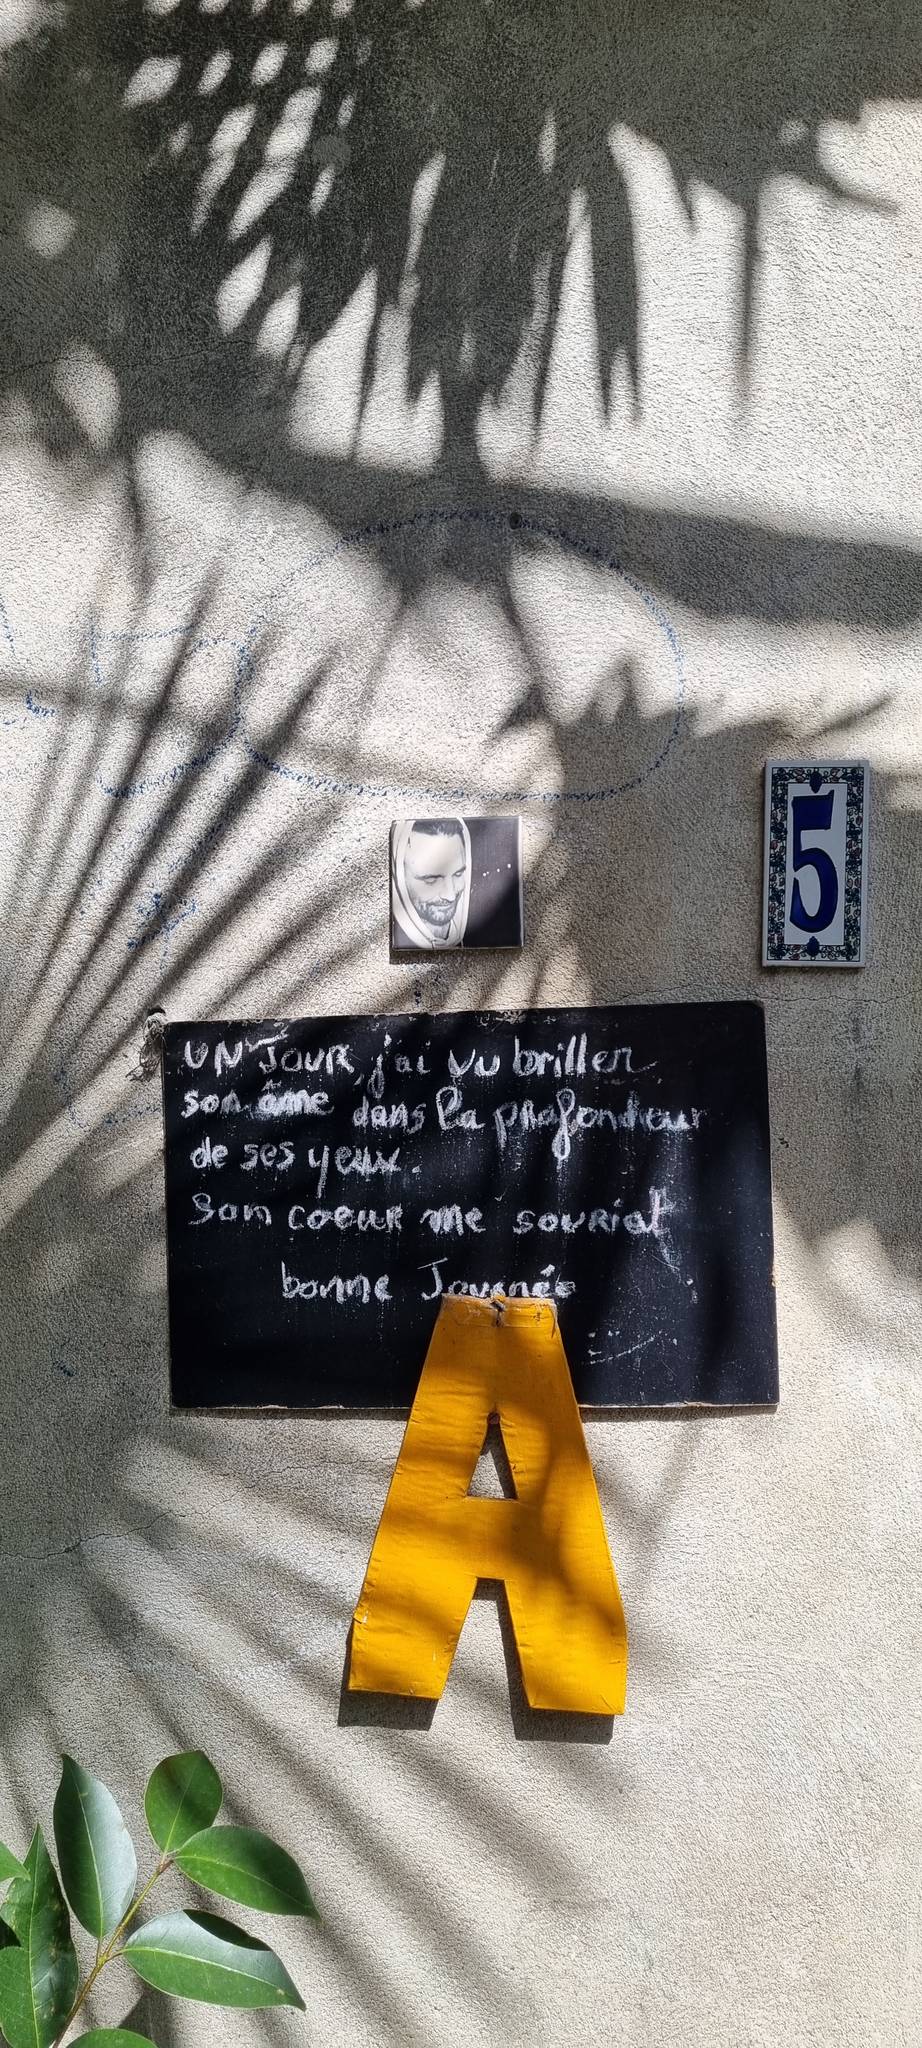 5
UN JOUR, j'ai vu briller
son âme dans la profondeur
de ses yeux.
Son coeur me souriat
bonne Journée
A